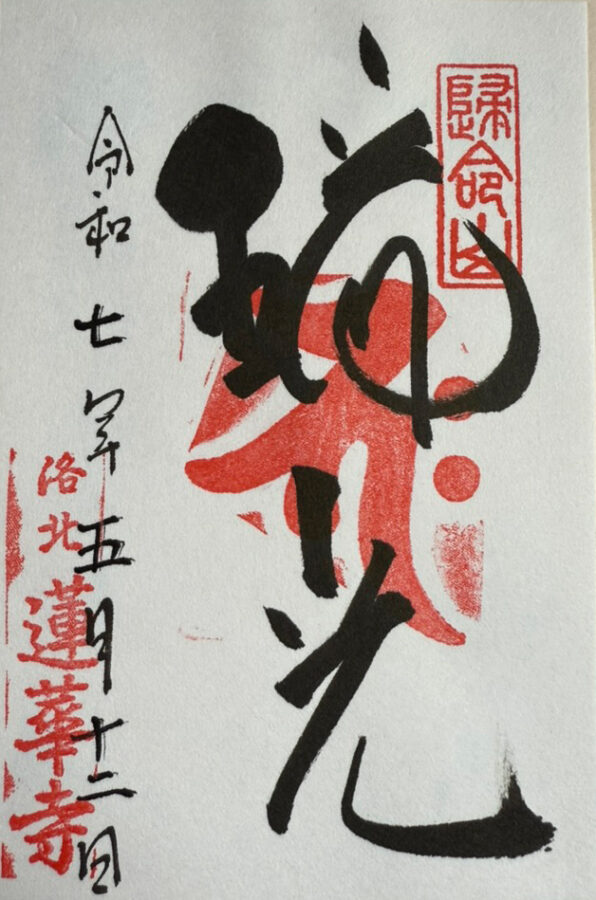 歸命山
光
令和七年五月十二日
洛北
蓮華寺